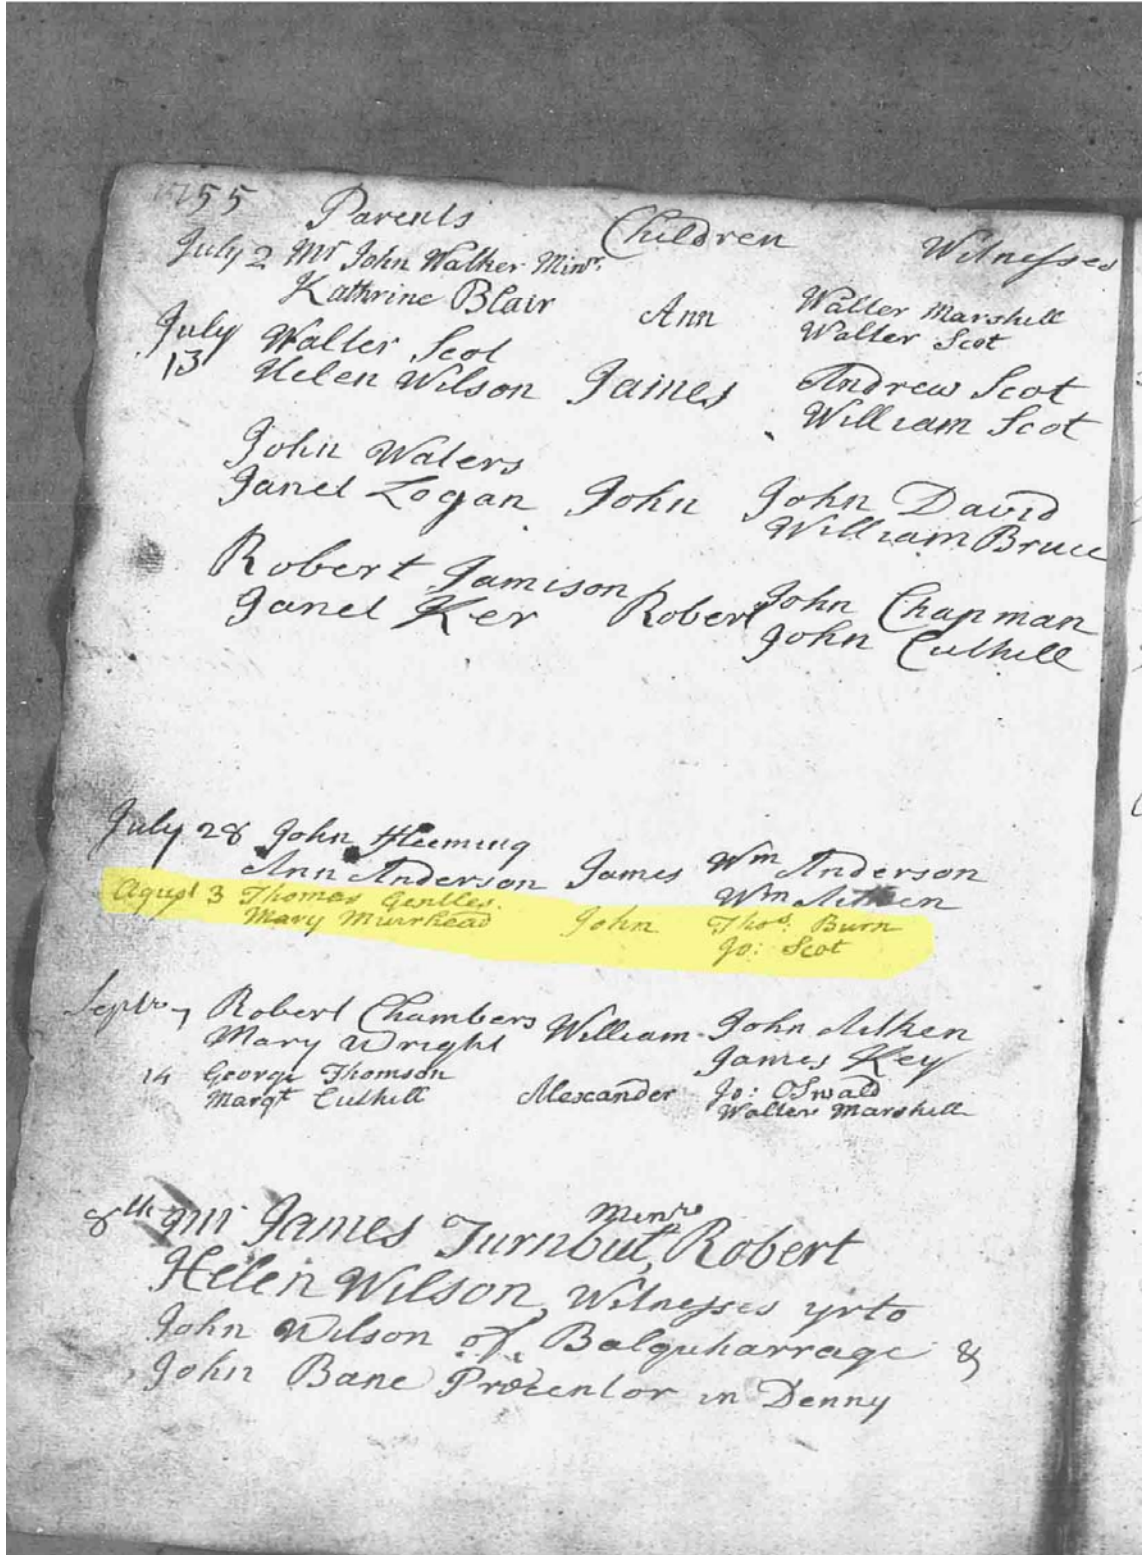 1755 Parents Children Witnesses
July 2 Mr John Walker Minr.
Kathrine Blair Ann Walter Marshell
Walter Scot
July Walter Scot
13 Helen Wilson James Andrew Scot
William Scot
John Waters
Janet Logan John John David
William Bruce
Robert Jamison
Janet Ker Robert John Chapman
John Cuthell
July 28 John Fleeming
Ann Anderson James Wm Anderson
Wm Aitken
Agust 3 Thomas Gentles.
Mary Muirhead John Thos: Burn
Jo: Scot
Septr 7 Robert Chambers William John Aitken
Mary Wright James Key
14 George Thomson
Margt Cuthell Alexander Jo: Oswald
Walter Marshell
8th Mr James Turnbul, Minr Robert
Helen Wilson, Witnesses yrto
John Wilson of Balquharrage &
John Bane Precentor in Denny